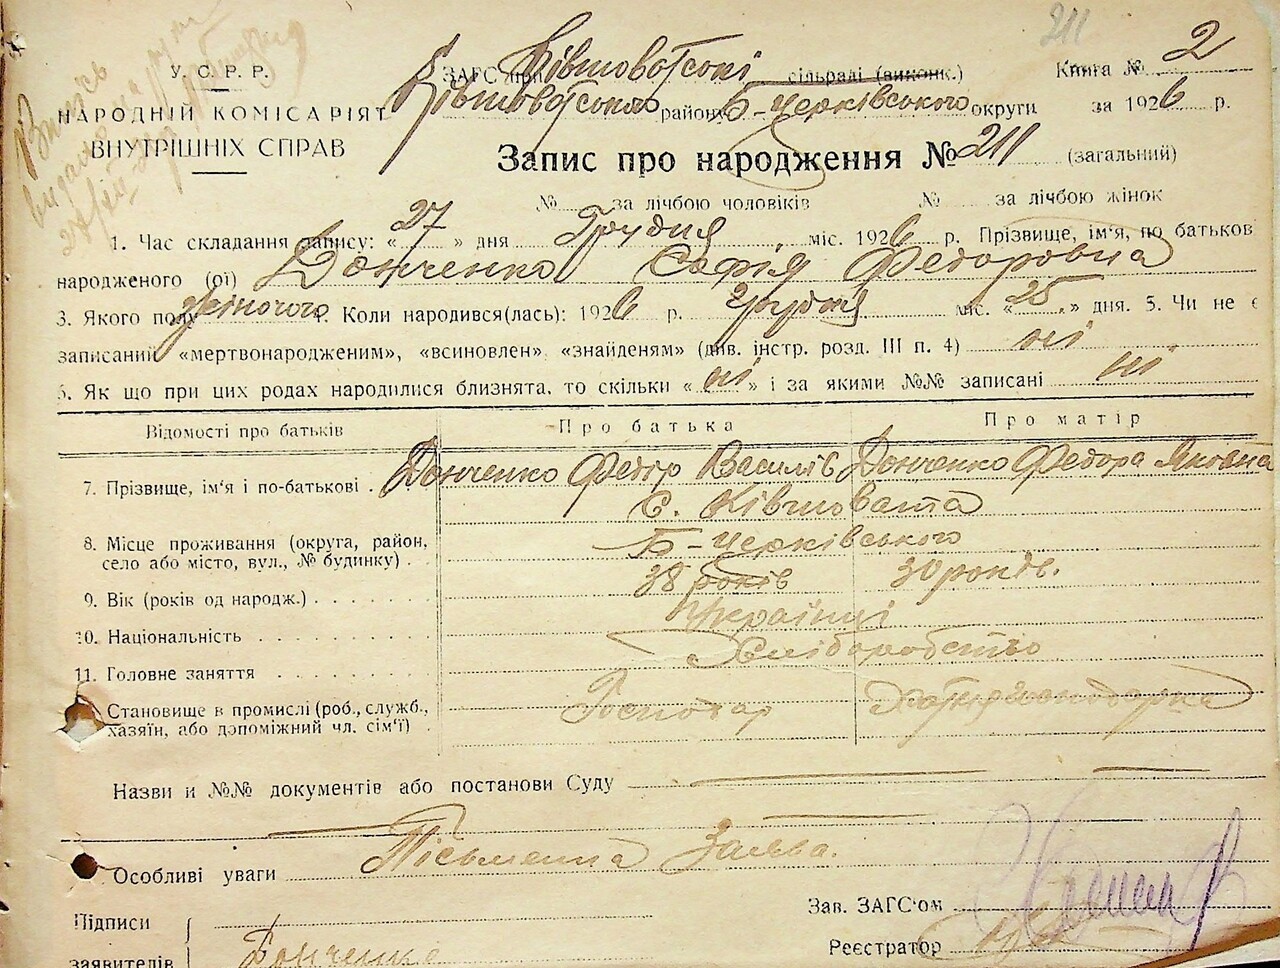 211
У. С. Р. Р.
НАРОДНІЙ КОМІСАРІЯТ
ВНУТРІШНІХ СПРАВ
Випись
видано
ЗАГС при Ківшоватські сільраді (виконк.) Книга № 2
Ківшоватського району Б-Черківського округи за 1926 р.
Запис про народження № 211 (загальний)
№ за лічбою чоловіків № за лічбою жінок
1. Час складання запису: «27» дня Грудня міс. 1926 р. Прізвище, ім'я, по батьков
народженого (ої) Донченко Софія Федоровна
3. Якого полу жіночого 4. Коли народився(лась): 1926 р. грудня міс. «25» дня. 5. Чи не є
записаний «мертвонародженим», «всиновлен» «знайденям» (див. інстр. розд. III п. 4) ні
6. Як що при цих родах народилися близнята, то скільки «ні» і за якими №№ записані ні
Відомості про батьків Про батька Про матір
7. Прізвище, ім'я і по-батькові Донченко Федір Василів Донченко Федора Яківна
с. Ківшовата
8. Місце проживання (округа, район, село або місто, вул., № будинку) Б-Черківського
9. Вік (років од народж.) 38 років 30 років.
10. Національність Українці
11. Головне заняття Хліборобство
Становище в промислі (роб., служб., хазяїн, або допоміжний чл. сім'ї) Господар
Назви и №№ документів або постанови Суду
Особливі уваги Письменна Заява.
Підписи
заявителів Донченко
Зав. ЗАГС'ом
Реєстратор